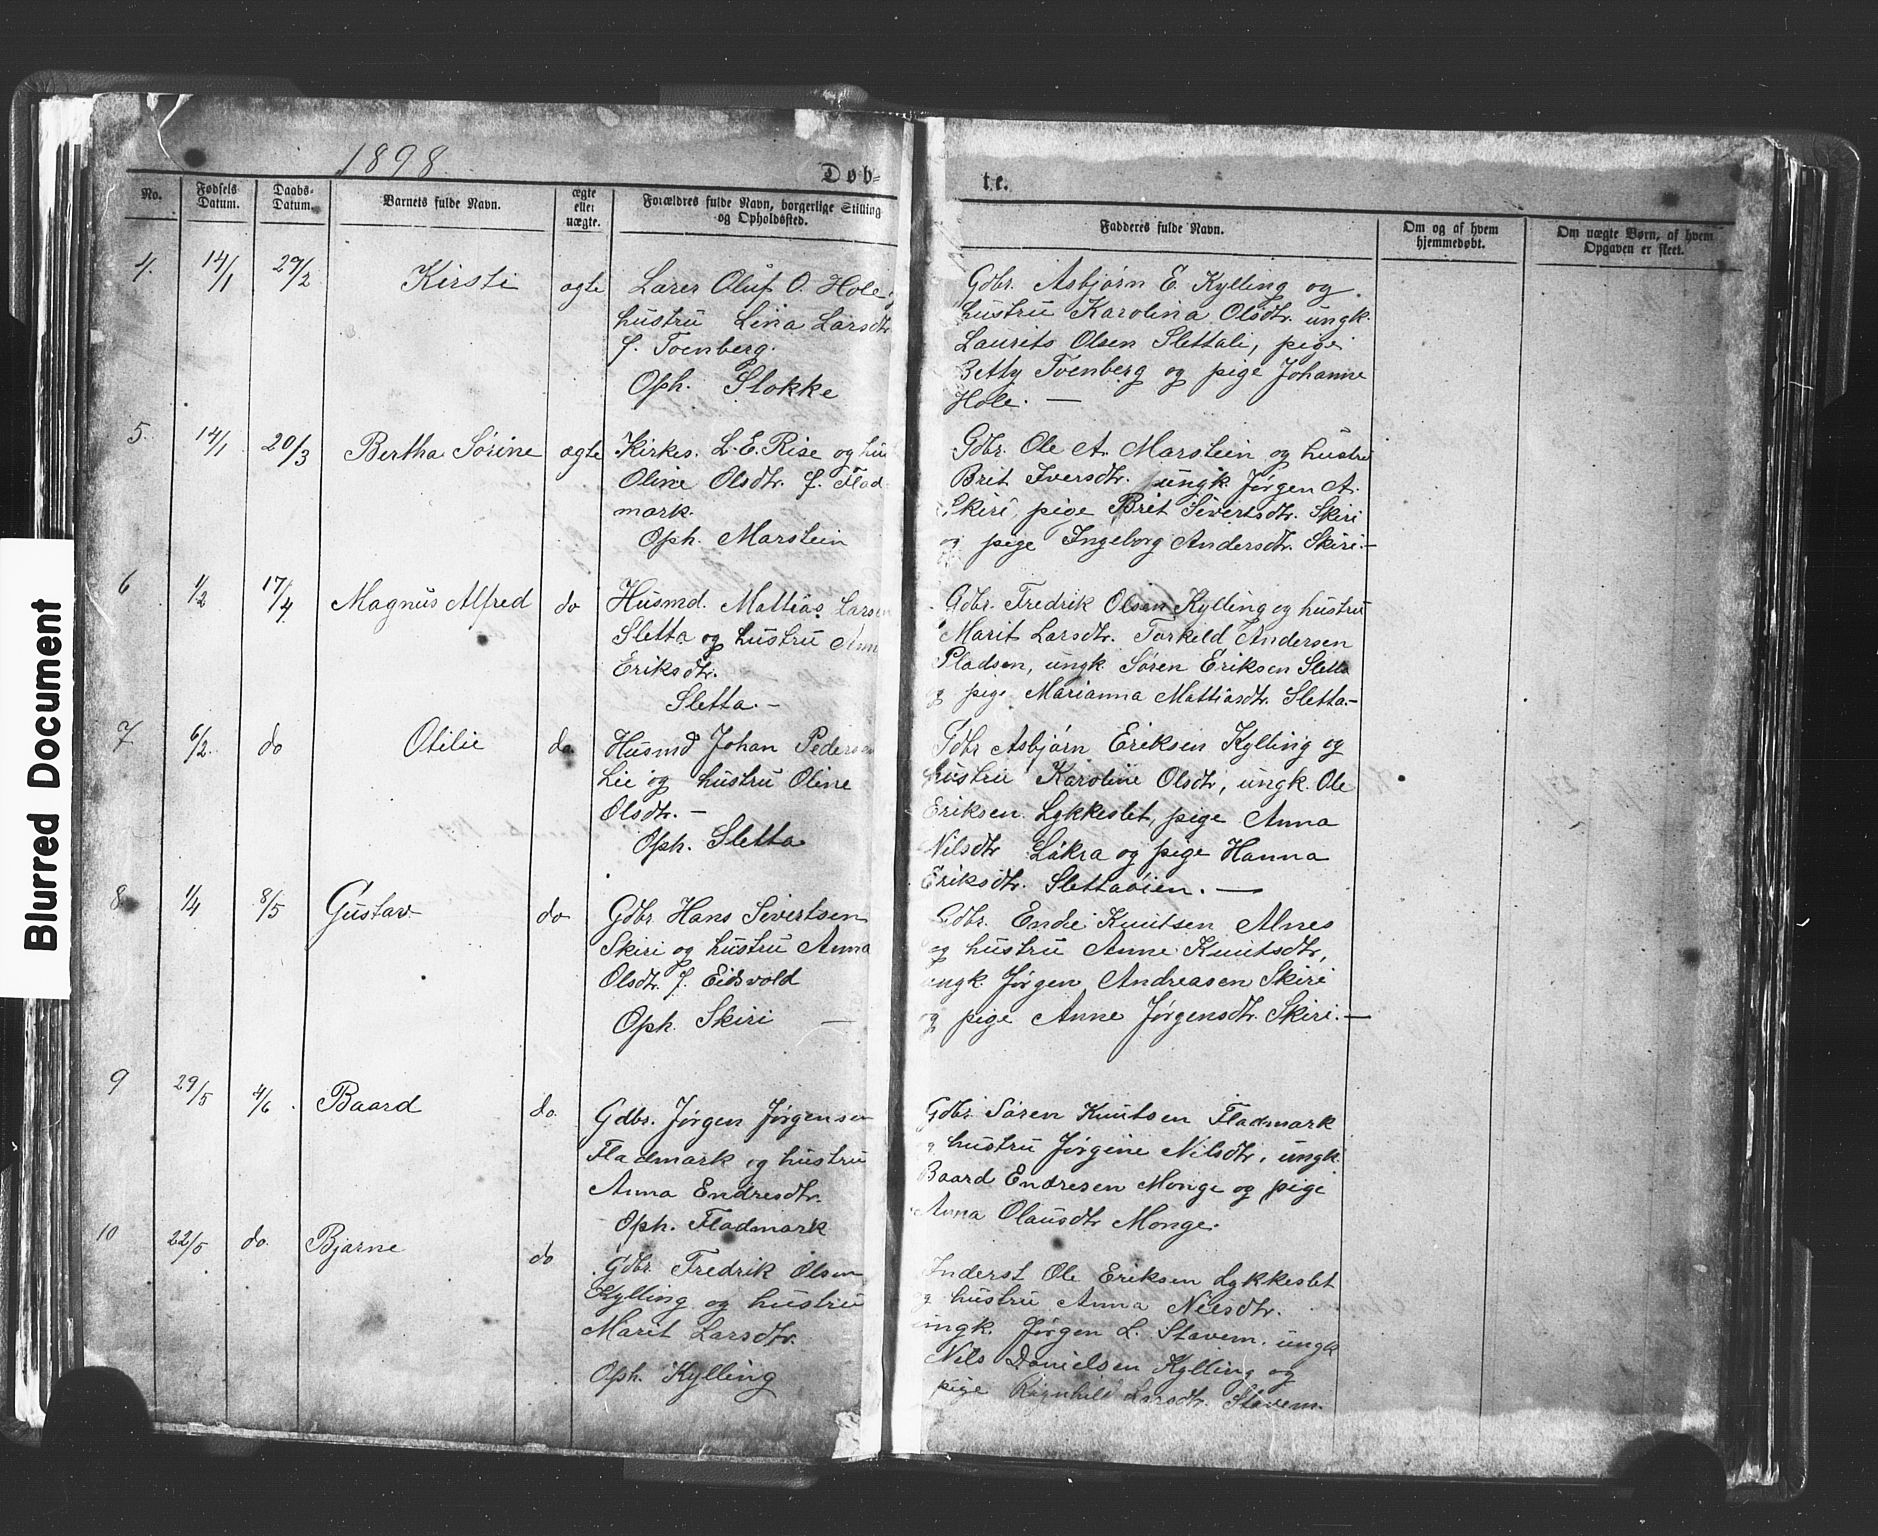 1898
Døb-
te.
No.
Fødsels Datum.
Daabs-Datum.
Barnets fulde Navn.
ægte eller uægte.
Forældres fulde Navn, borgerlige Stilling
og Opholdssted.
Fadderes fulde Navn.
Om og af hvem
hjemmedøbt.
Om uægte Børn, af hvem
Opgaven er skeet.
4. 14/1 27/2 Kirsti ægte
Lærer Oluf O. Hole og
hustru Lina Larsdtr.
f. Tvenberg.
Oph. Stokke
Gdbr. Asbjørn E. Kylling og
hustru Karolina Olsdtr. ungk.
Laurits Olsen Slettali, pige
Betty Tvenberg og pige Johanne
Hole. —
5. 14/1 20/3 Bertha Sørine ægte
Kirkes. L. E. Rise og hus
Oline Olsdtr. f. Flad-
mark.
Oph. Marstein
Gdbr. Ole A. Marstein og hustru
Brit Iversdtr. ungk Jørgen A.
Skiri, pige Brit Sivertsdtr. Skiri
og pige Ingeborg Andersdtr. Skiri. —
6 1/2 17/4 Magnus Alfred do
Husmd. Mattias Larsen
Sletta og hustru Ann
Eriksdtr.
Sletta. —
Gdbr. Fredrik Olsen Kylling og hustru
Marit Larsdtr. Torkild Andersen
Pladsen, ungk. Søren Eriksen Sletta
og pige Marianna Mattiasdtr. Sletta. —
7 6/2. do Otilie do.
Husmd Johan Pedersen
Lie og hustru Oline
Olsdtr. —
Oph. Sletta
Gdbr Asbjørn Eriksen Kylling og
hustru Karoline Olsdtr, ungk. Ole
Eriksen Lykkeslet, pige Anna
Nilsdtr Løkra og pige Hanna
Eriksdtr. Slettaøien. —
8 1/4 8/5 Gustav do
Gdbr. Hans Sivertsen
Skiri og hustru Anna
Olsdtr. f. Eidsvold
Oph. Skiri —
Gdbr. Endre Knutsen Alnes
og hustru Anne Knutsdtr,
ungk. Jørgen Andreasen Skiri
og pige Anne Jørgensdtr. Skiri. —
9 29/5 4/6. Baard do.
Gdbr. Jørgen Jørgensen
Fladmark og hustru
Anna Endresdtr.
Oph. Fladmark
Gdbr. Søren Knutsen Fladmark
og hustru Jørgine Nilsdtr. ungk.
Baard Endresen Monge og pige
Anna Olausdtr Monge.
10 22/5 do. Bjarne do
Gdbr Fredrik Olsen
Kylling og hustru
Marit Larsdtr.
Oph. Kylling
Inderst Ole Eriksen Lykkeslet
og hustru Anna Nilsdtr.
ungk. Jørgen L. Stavem. ungk
Nils Danielsen Kylling og
pige Ragnhild Larsdtr. Stavem.
Blurred Document